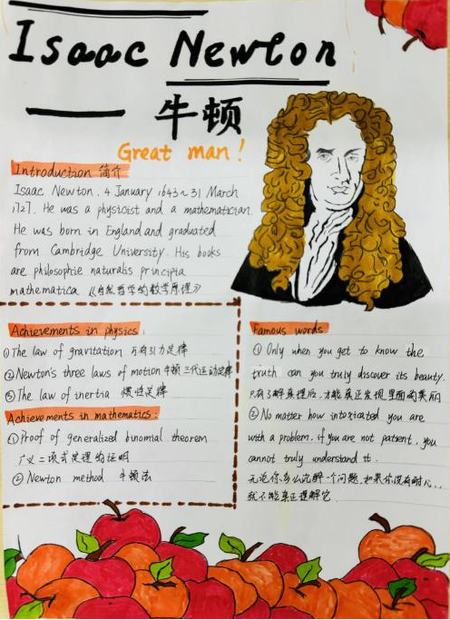 Isaac Newton
牛顿
Great man!
Introduction 简介
Isaac Newton. 4 January 1643~31 March
1727. He was a physicist and a mathematician.
He was born in England and graduated
from Cambridge University. His books
are philosophie naturalis principia
mathematica 《自然哲学的数学原理》
Achievements in physics:
①The law of gravitation 万有引力定律
②Newton's three laws of motion 牛顿三代运动定律
③The law of inertia 惯性定律
Achievements in mathematics:
①Proof of generalized binomial theorem
广义二项式定理的证明
②Newton method 牛顿法
Famous words
① Only when you get to know the
truth can you truly discover its beauty.
只有了解真理后,才能真正发现里面的美丽
② No matter how intoxicated you are
with a problem, if you are not patient, you
cannot truly understand it.
无论你多么沉醉一个问题,如果你没有耐心,
就不能真正理解它.